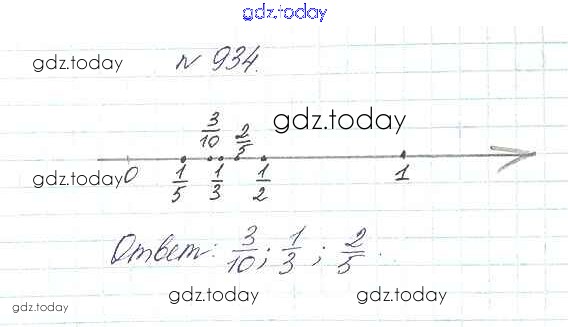 gdz.today
gdz.today № 934.
3/10 2/5 gdz.today
gdz.today 0 1/5 1/3 1/2 1
Ответ: 3/10; 1/3; 2/5.
gdz.today gdz.today
gdz.today